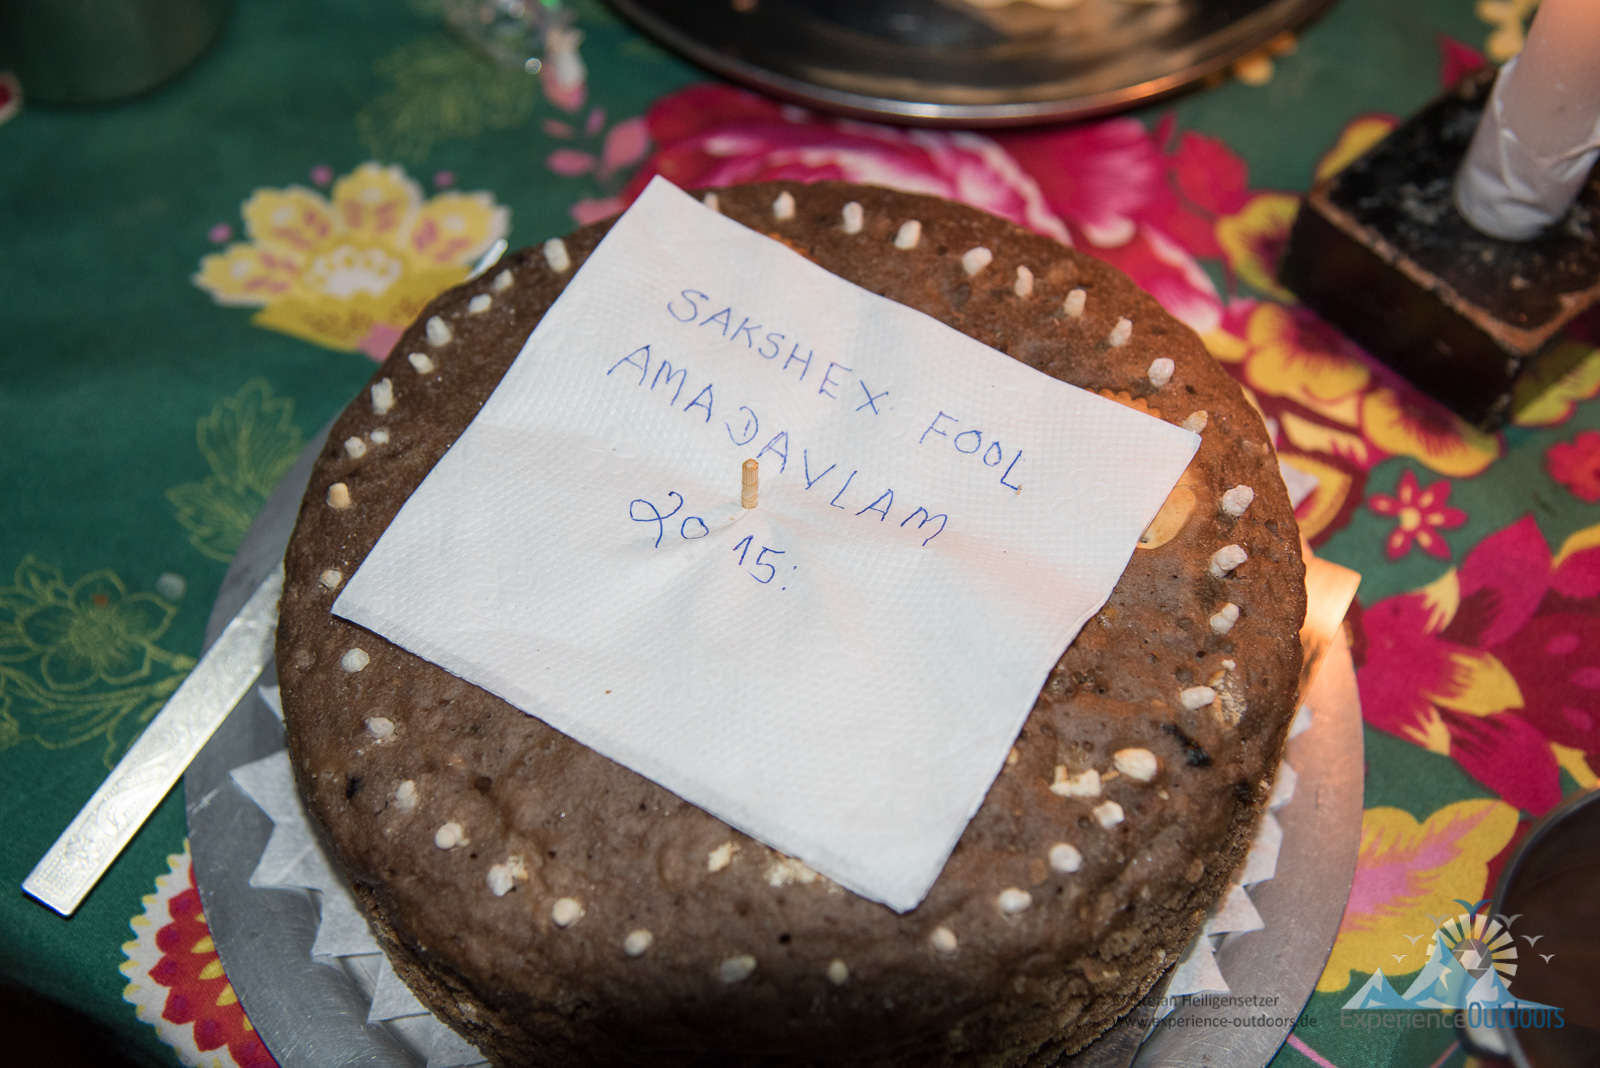 SAKSHEX FOOL
AMADAVLAM
2015:
© Stefan Heiligensetzer
www.experience-outdoors.de
ExperienceOutdoors